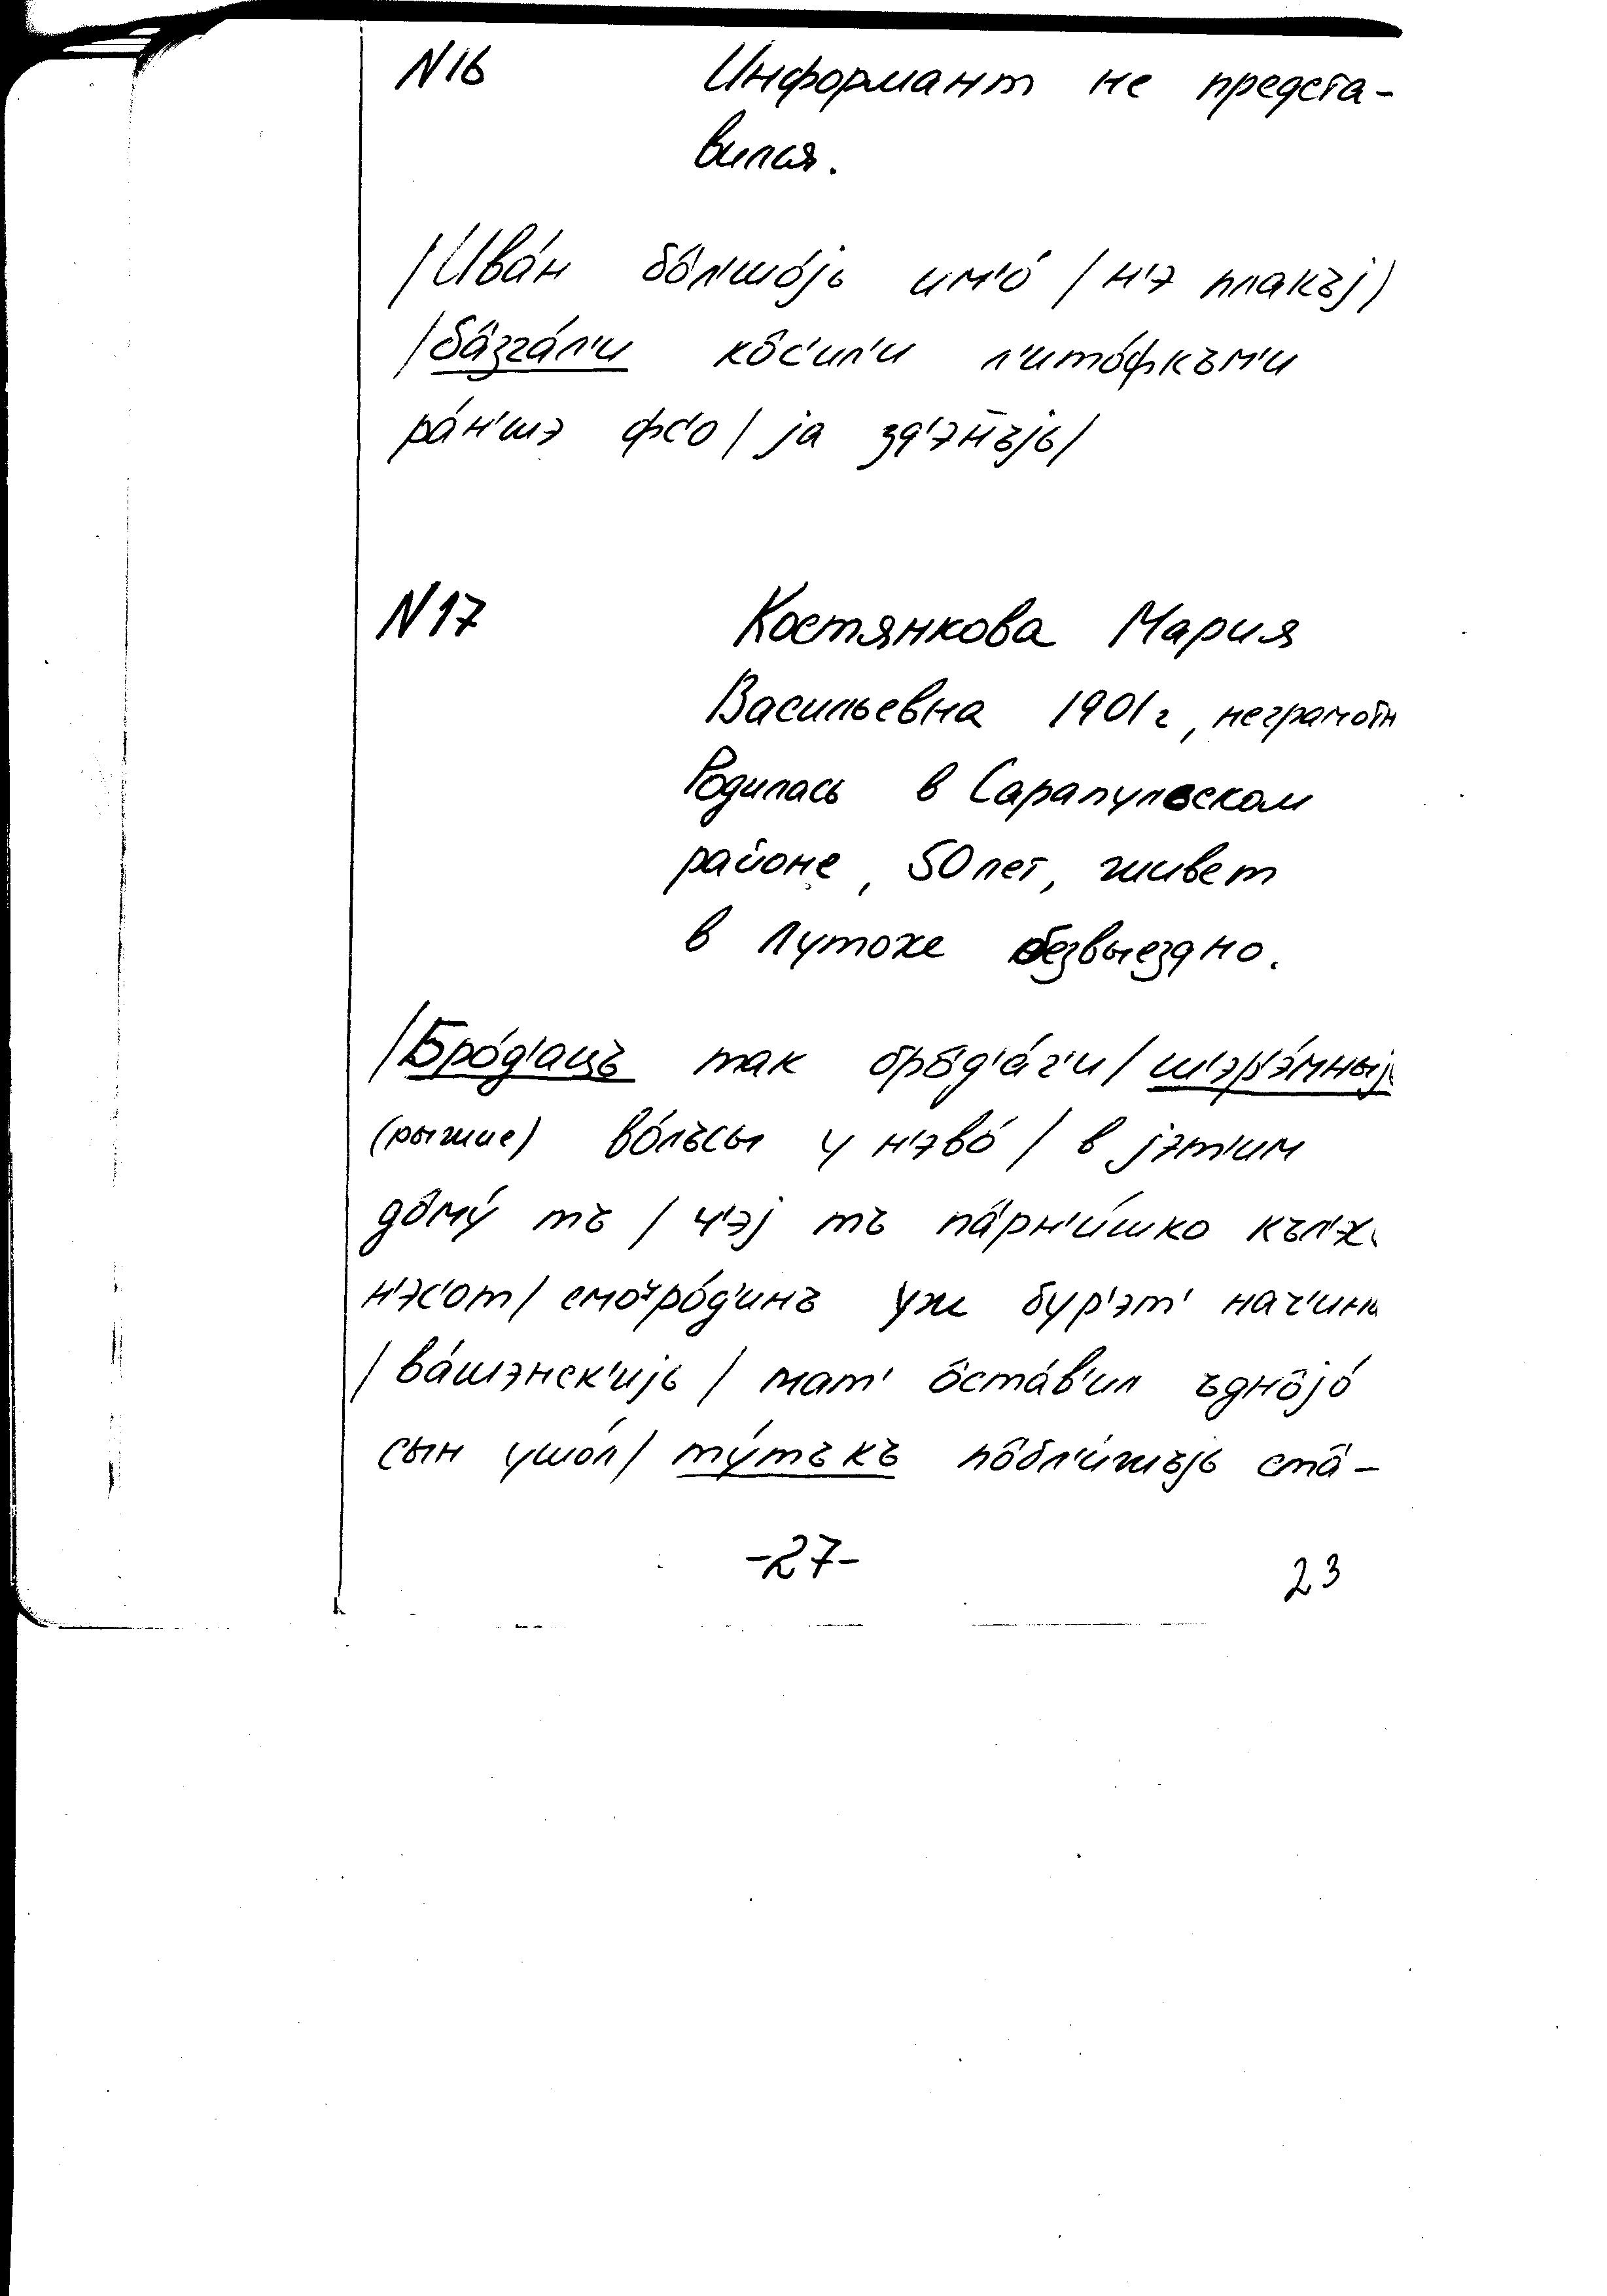 N16 Информант не предста-
вился.
/Ива́н бо̂л'шо́jь им'о́ / н'э плакъj)
/ба̂зга́л'и ко̂с'ил'и л'ито́фкъм'и
ра́н'шэ фс'о / jа зд'э́н̄ъjь/
N17 Костянкова Мария
Васильевна 1901 г, неграмотн
Родилась в Сарапульском
районе, 50 лет, живет
в Лутохе безвыездно.
/Бро́д'ацъ так бро̂д'а́г'и / ш'эр'э́мныj
(рыжие) во́лъсы у н'эво́ / в jэт'им
до̂му́ тъ / ч'эj тъ па̂рн'и́шко
н'эс'от / смо̂ро́д'инъ уж бур'эт' нач'ин
/ ва́шэнск'иjь / мат' о̂ста́в'ил ъдно̂jо́
сын ушо́л / ту́тъкъ по̂бл'и́жъjь ста̂-
-27- 23